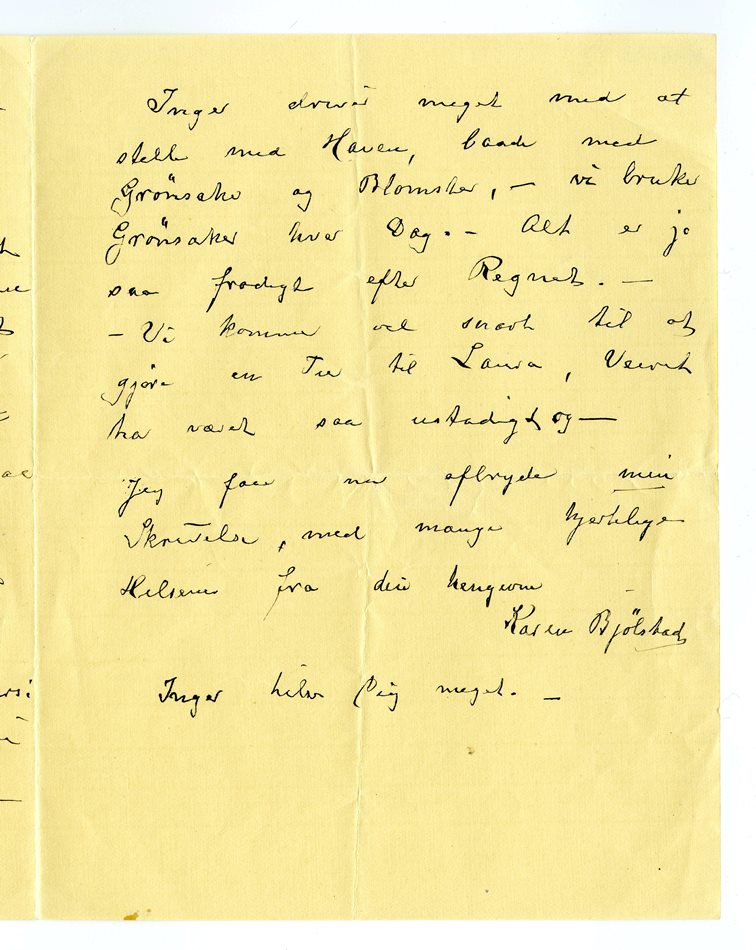 Inger driver meget med at
stelle med Haven, baade med
Grönsake og Blomster, – vi bruke
Grönsaker hver Dag. – Alt er jo
saa frodigt efter Regnet. –
– Vi kommer vel snart til at
gjöre en Tur til Laura, Veiret
har været saa ustadigt, og –
Jeg faar nu afbryde min
Skrivelse, med mange hjertelige
Hilsener fra din hengivne –
Karen Bjölstad
Inger hilser Dig meget. –